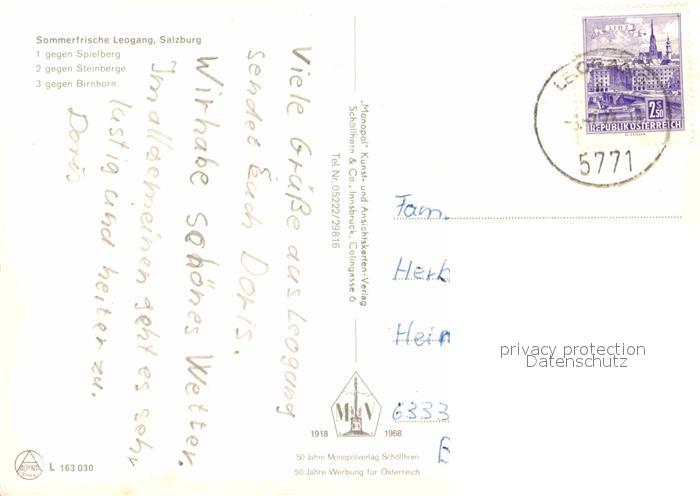 Sommerfrische Leogang, Salzburg
1 gegen Spielberg
2 gegen Steinberge
3 gegen Birnhorn
Viele Grüße aus Leogang
sendet Euch Doris.
Wir habe schönes Wetter.
Im allgemeinen geht es sehr
lustig und heiter zu.
Doris
„Monopol" Kunst- und Ansichtskarten-Verlag
Schöllhorn & Co., Innsbruck, Colingasse 6
Tel. Nr. 05222/29816
LINZ
2.50 S
REPUBLIK ÖSTERREICH
5771
Fam.
Herb
Hein
6333
privacy protection
Datenschutz
M V
1918 1968
50 Jahre Monopolverlag Schöllhorn
50 Jahre Werbung für Österreich
ALPINA
L 163 030